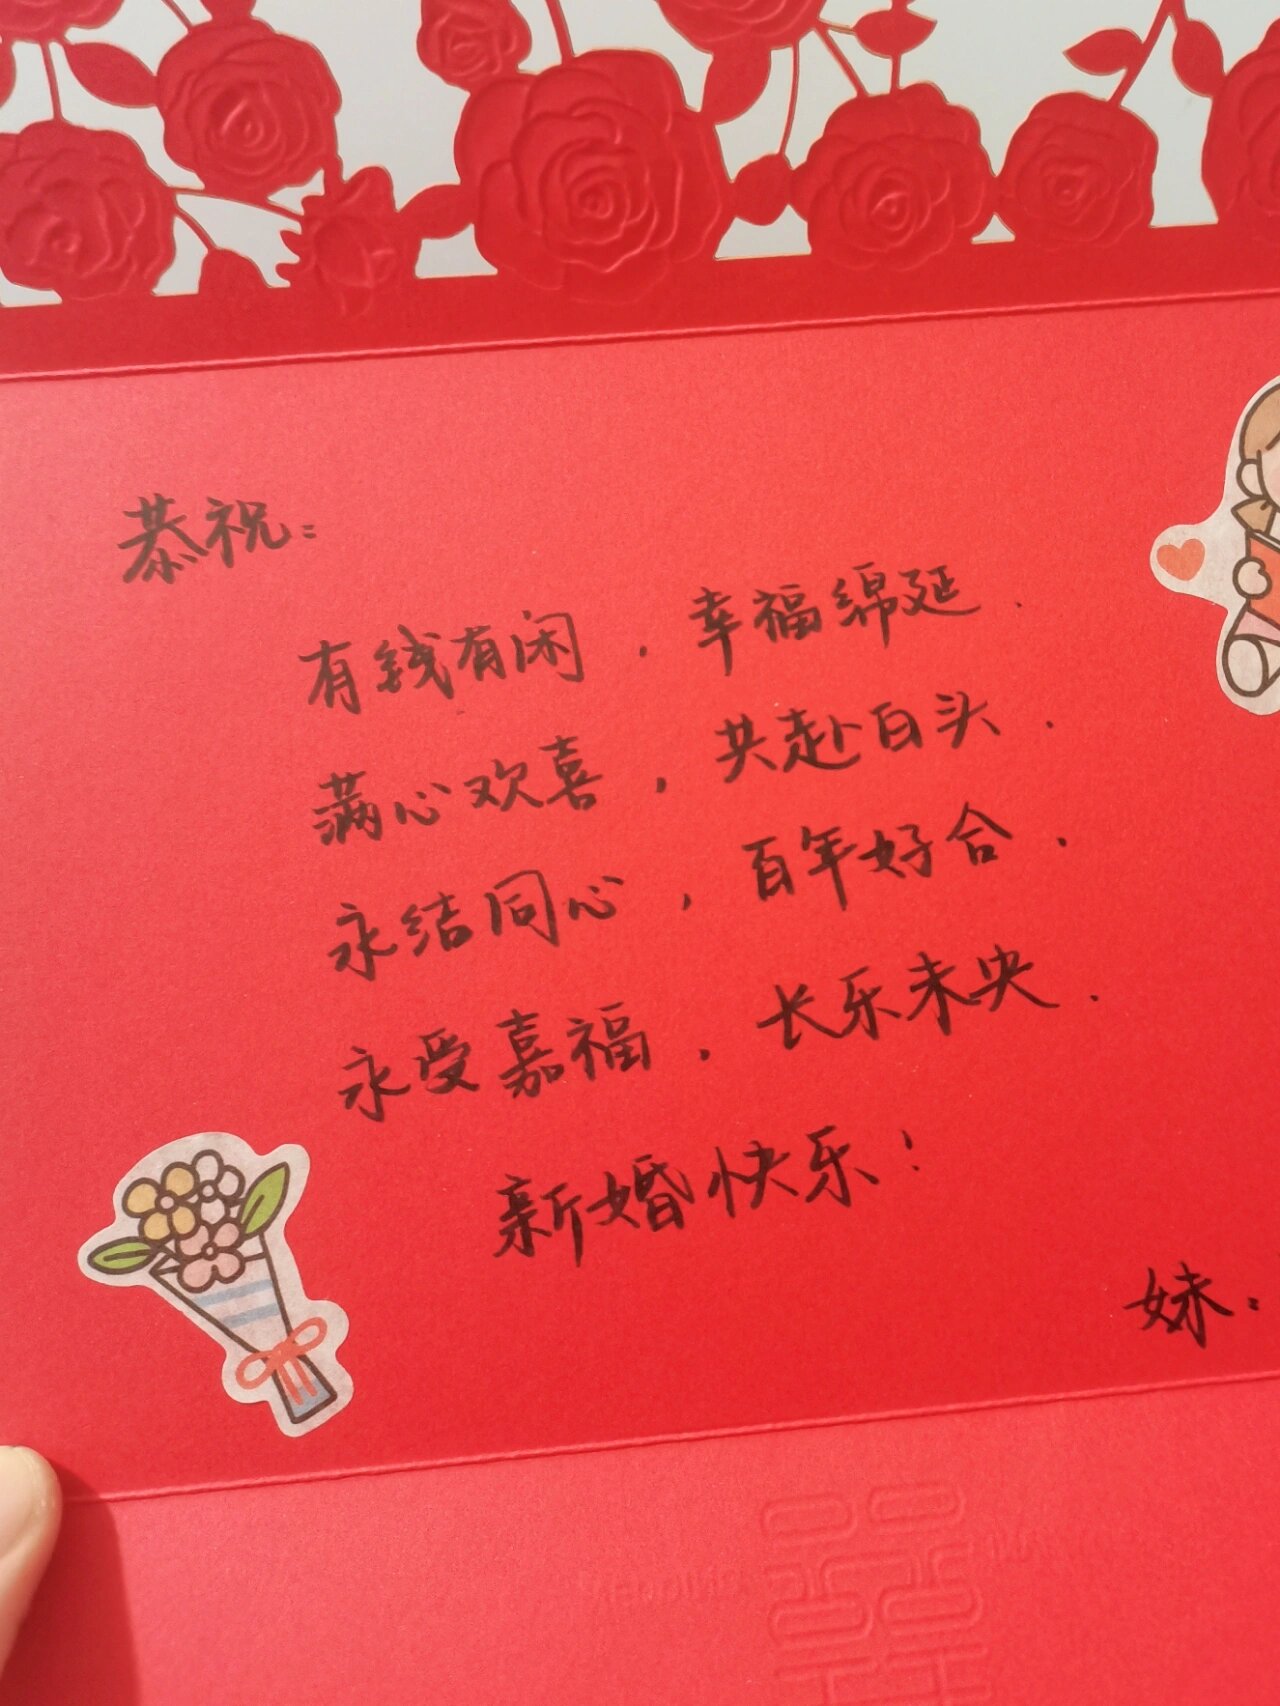 恭祝：
有钱有闲，幸福绵延．
满心欢喜，共赴白头．
永结同心，百年好合．
永受嘉福，长乐未央．
新婚快乐！
妹：